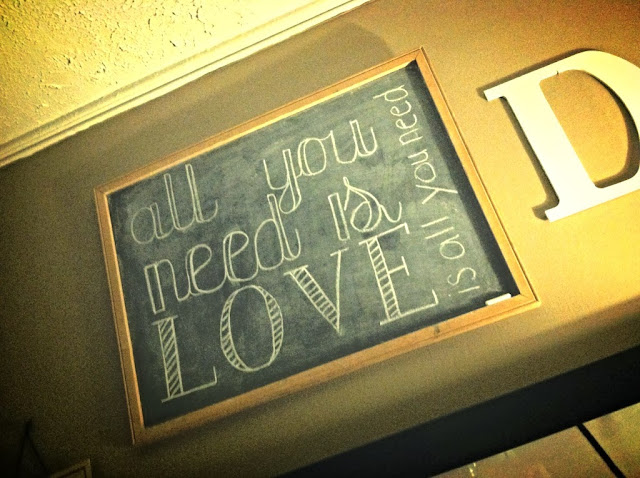 all you
need is
LOVE
is all you need
D